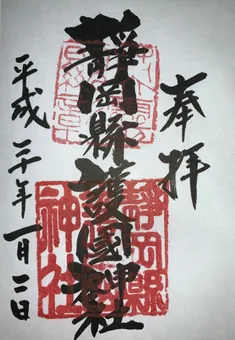 奉拝
靜岡縣護國神社
平成二十年一月二日
靜岡縣
神社